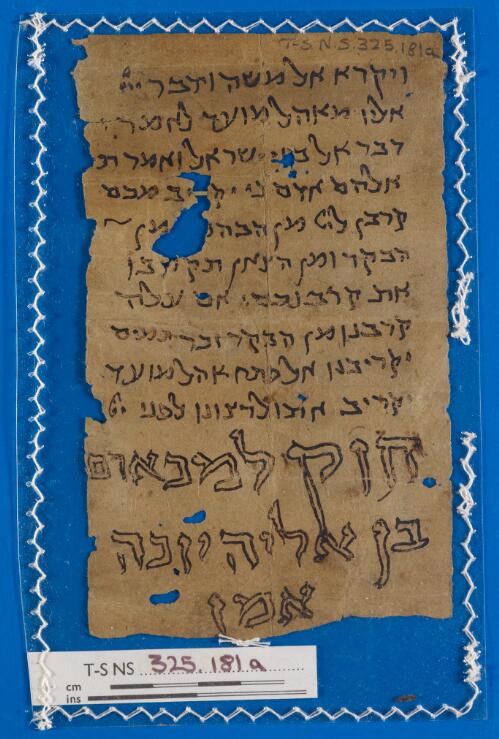 T-S N.S. 325.181a
ויקרא אל משה וידבר
אלו מאהל מועד לאמר
דבר אל בני ישראל ואמרת
אלהם אדם כי יקריב מכם
קרבן מן מן
הבקר ומן הצאן תקריבו
את קרבנכם אם עולה
קרבנו מן הבקר זכר תמים
יקריבנו אל פתח אהל מועד
יקריב אותו לרצונו לפני יי
חזק
בן אליה יזכה
אמן
T-S NS 325.181a
cm
ins